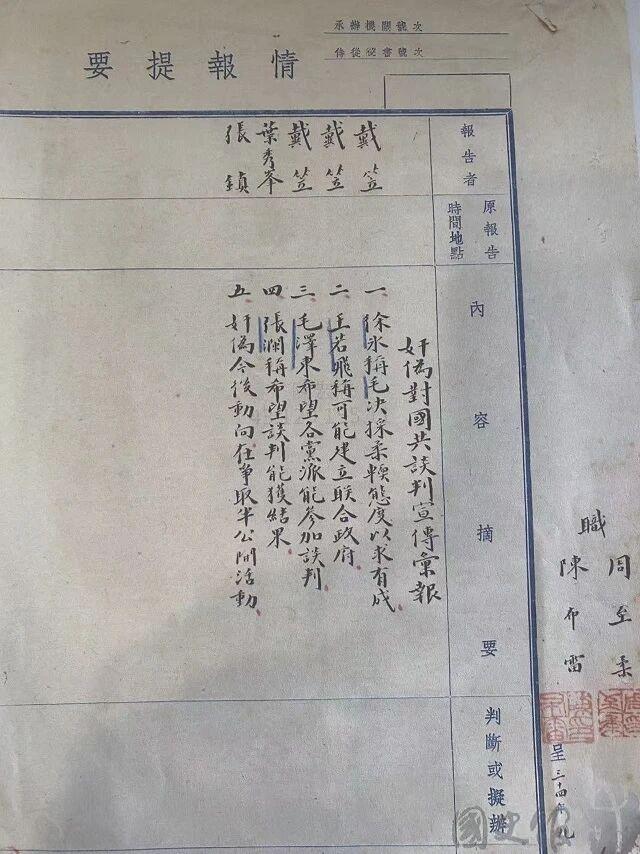 承辦機關號次
侍從秘書號次
情報提要
報告者
戴笠
戴笠
戴笠
葉秀峯
張鎮
原報告時間地點
內容摘要
奸偽對國共談判宣傳彙報
一、徐冰稱毛決採柔軟態度以求有成。
二、王若飛稱可能建立联合政府。
三、毛澤東希望各黨派能參加談判。
四、張瀾稱希望談判能獲結果。
五、奸偽今後動向在爭取半公開活動。
判斷或擬辦
職
周至柔
陳布雷
呈
三十四年九
國史館